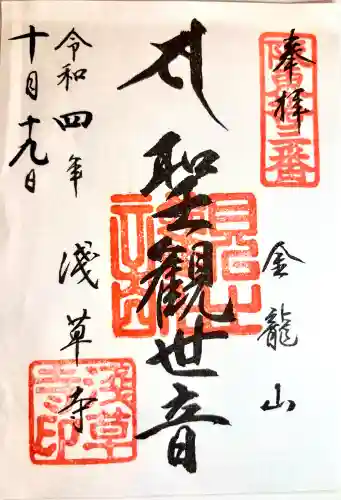 奉拝
坂東十三番
金龍山
聖観世音
浅草寺
令和四年
十月十九日
浅草寺印